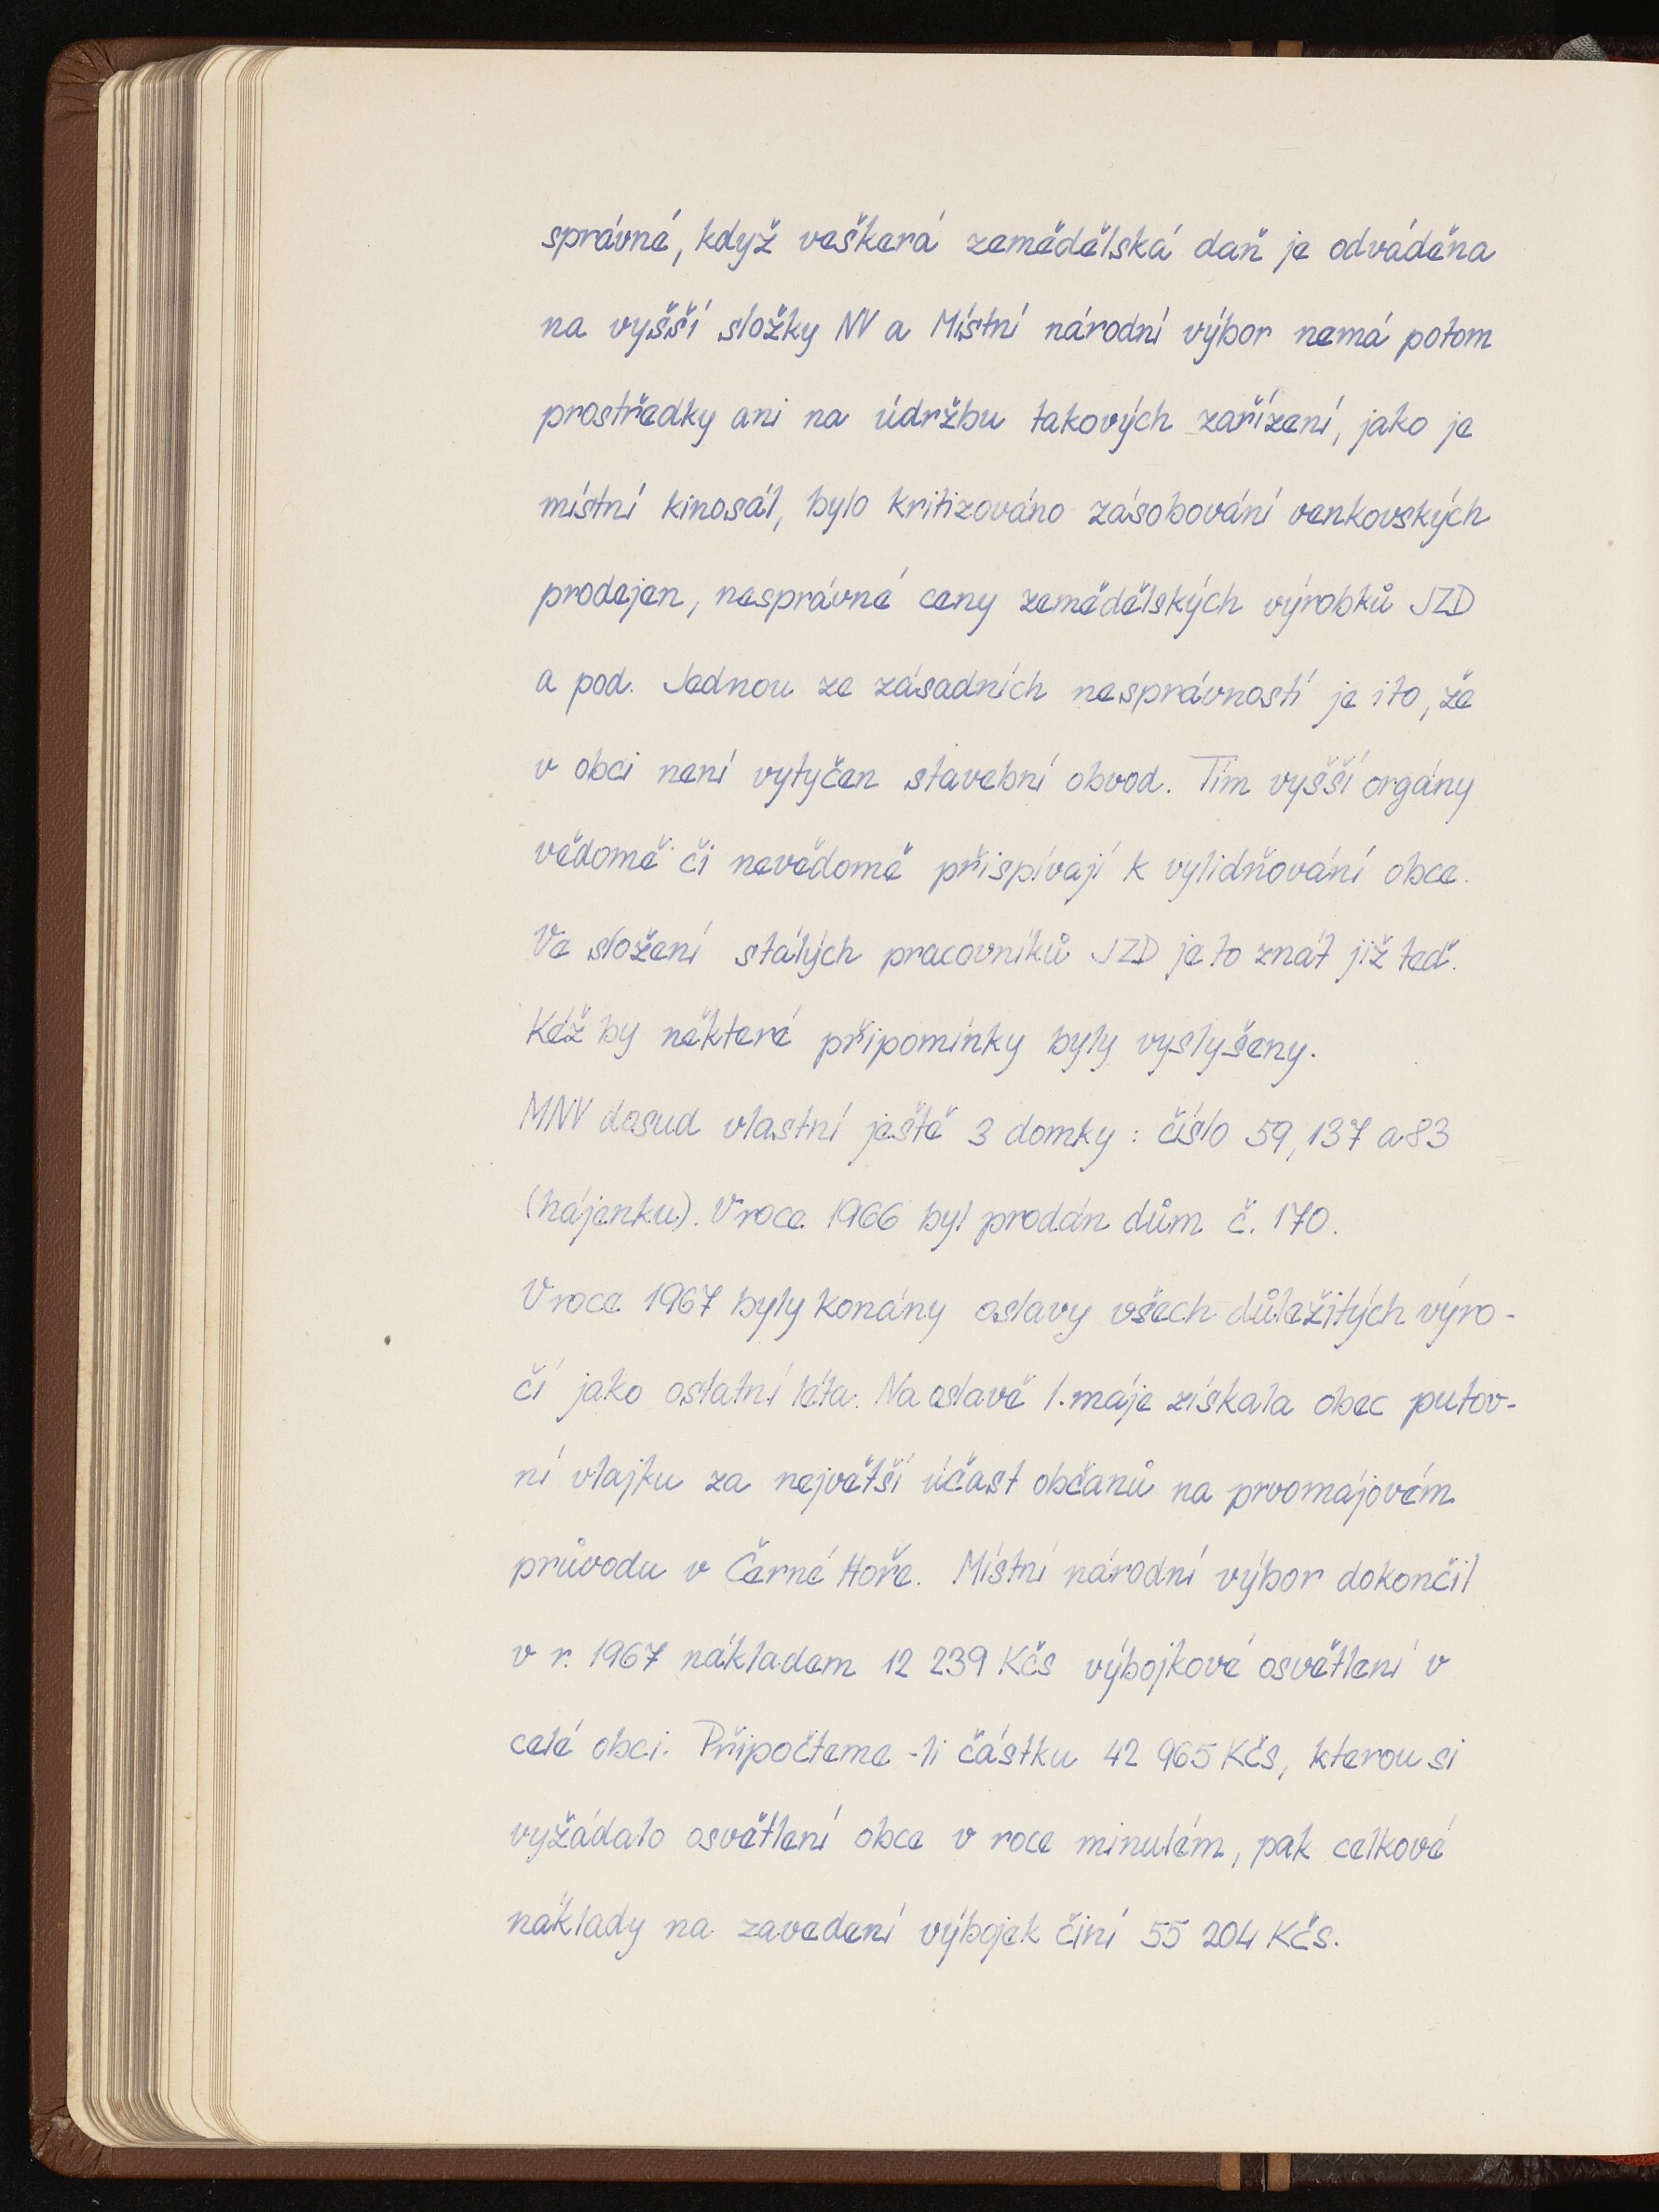 správné, když veškerá zemědělská daň je odváděna
na vyšší složky NV a Místní národní výbor nemá potom
prostředky ani na údržbu takových zařízení, jako je
místní kinosál, bylo kritizováno zásobování venkovských
prodejen, nesprávné ceny zemědělských výrobků JZD
a pod. Jednou ze zásadních nesprávností je i to, že
v obci není vytyčen stavební obvod. Tím vyšší orgány
vědomě či nevědomě přispívají k vylidňování obce.
Ve složení stálých pracovníků JZD je to znát již teď.
Kéž by některé připomínky byly vyslyšeny.
MNV dosud vlastní ještě 3 domky : číslo 59, 137 a 83
(hájenku). V roce 1966 byl prodán dům č. 170.
V roce 1967 byly konány oslavy všech důležitých výro-
čí jako ostatní léta. Na oslavě 1. máje získala obec putov-
ní vlajku za největší účast občanů na prvomájovém
průvodu v Černé Hoře. Místní národní výbor dokončil
v r. 1967 nákladem 12 239 Kčs výbojkové osvětlení v
celé obci. Připočteme-li částku 42 965 Kčs, kterou si
vyžádalo osvětlení obce v roce minulém, pak celkové
náklady na zavedení výbojek činí 55 204 Kčs.